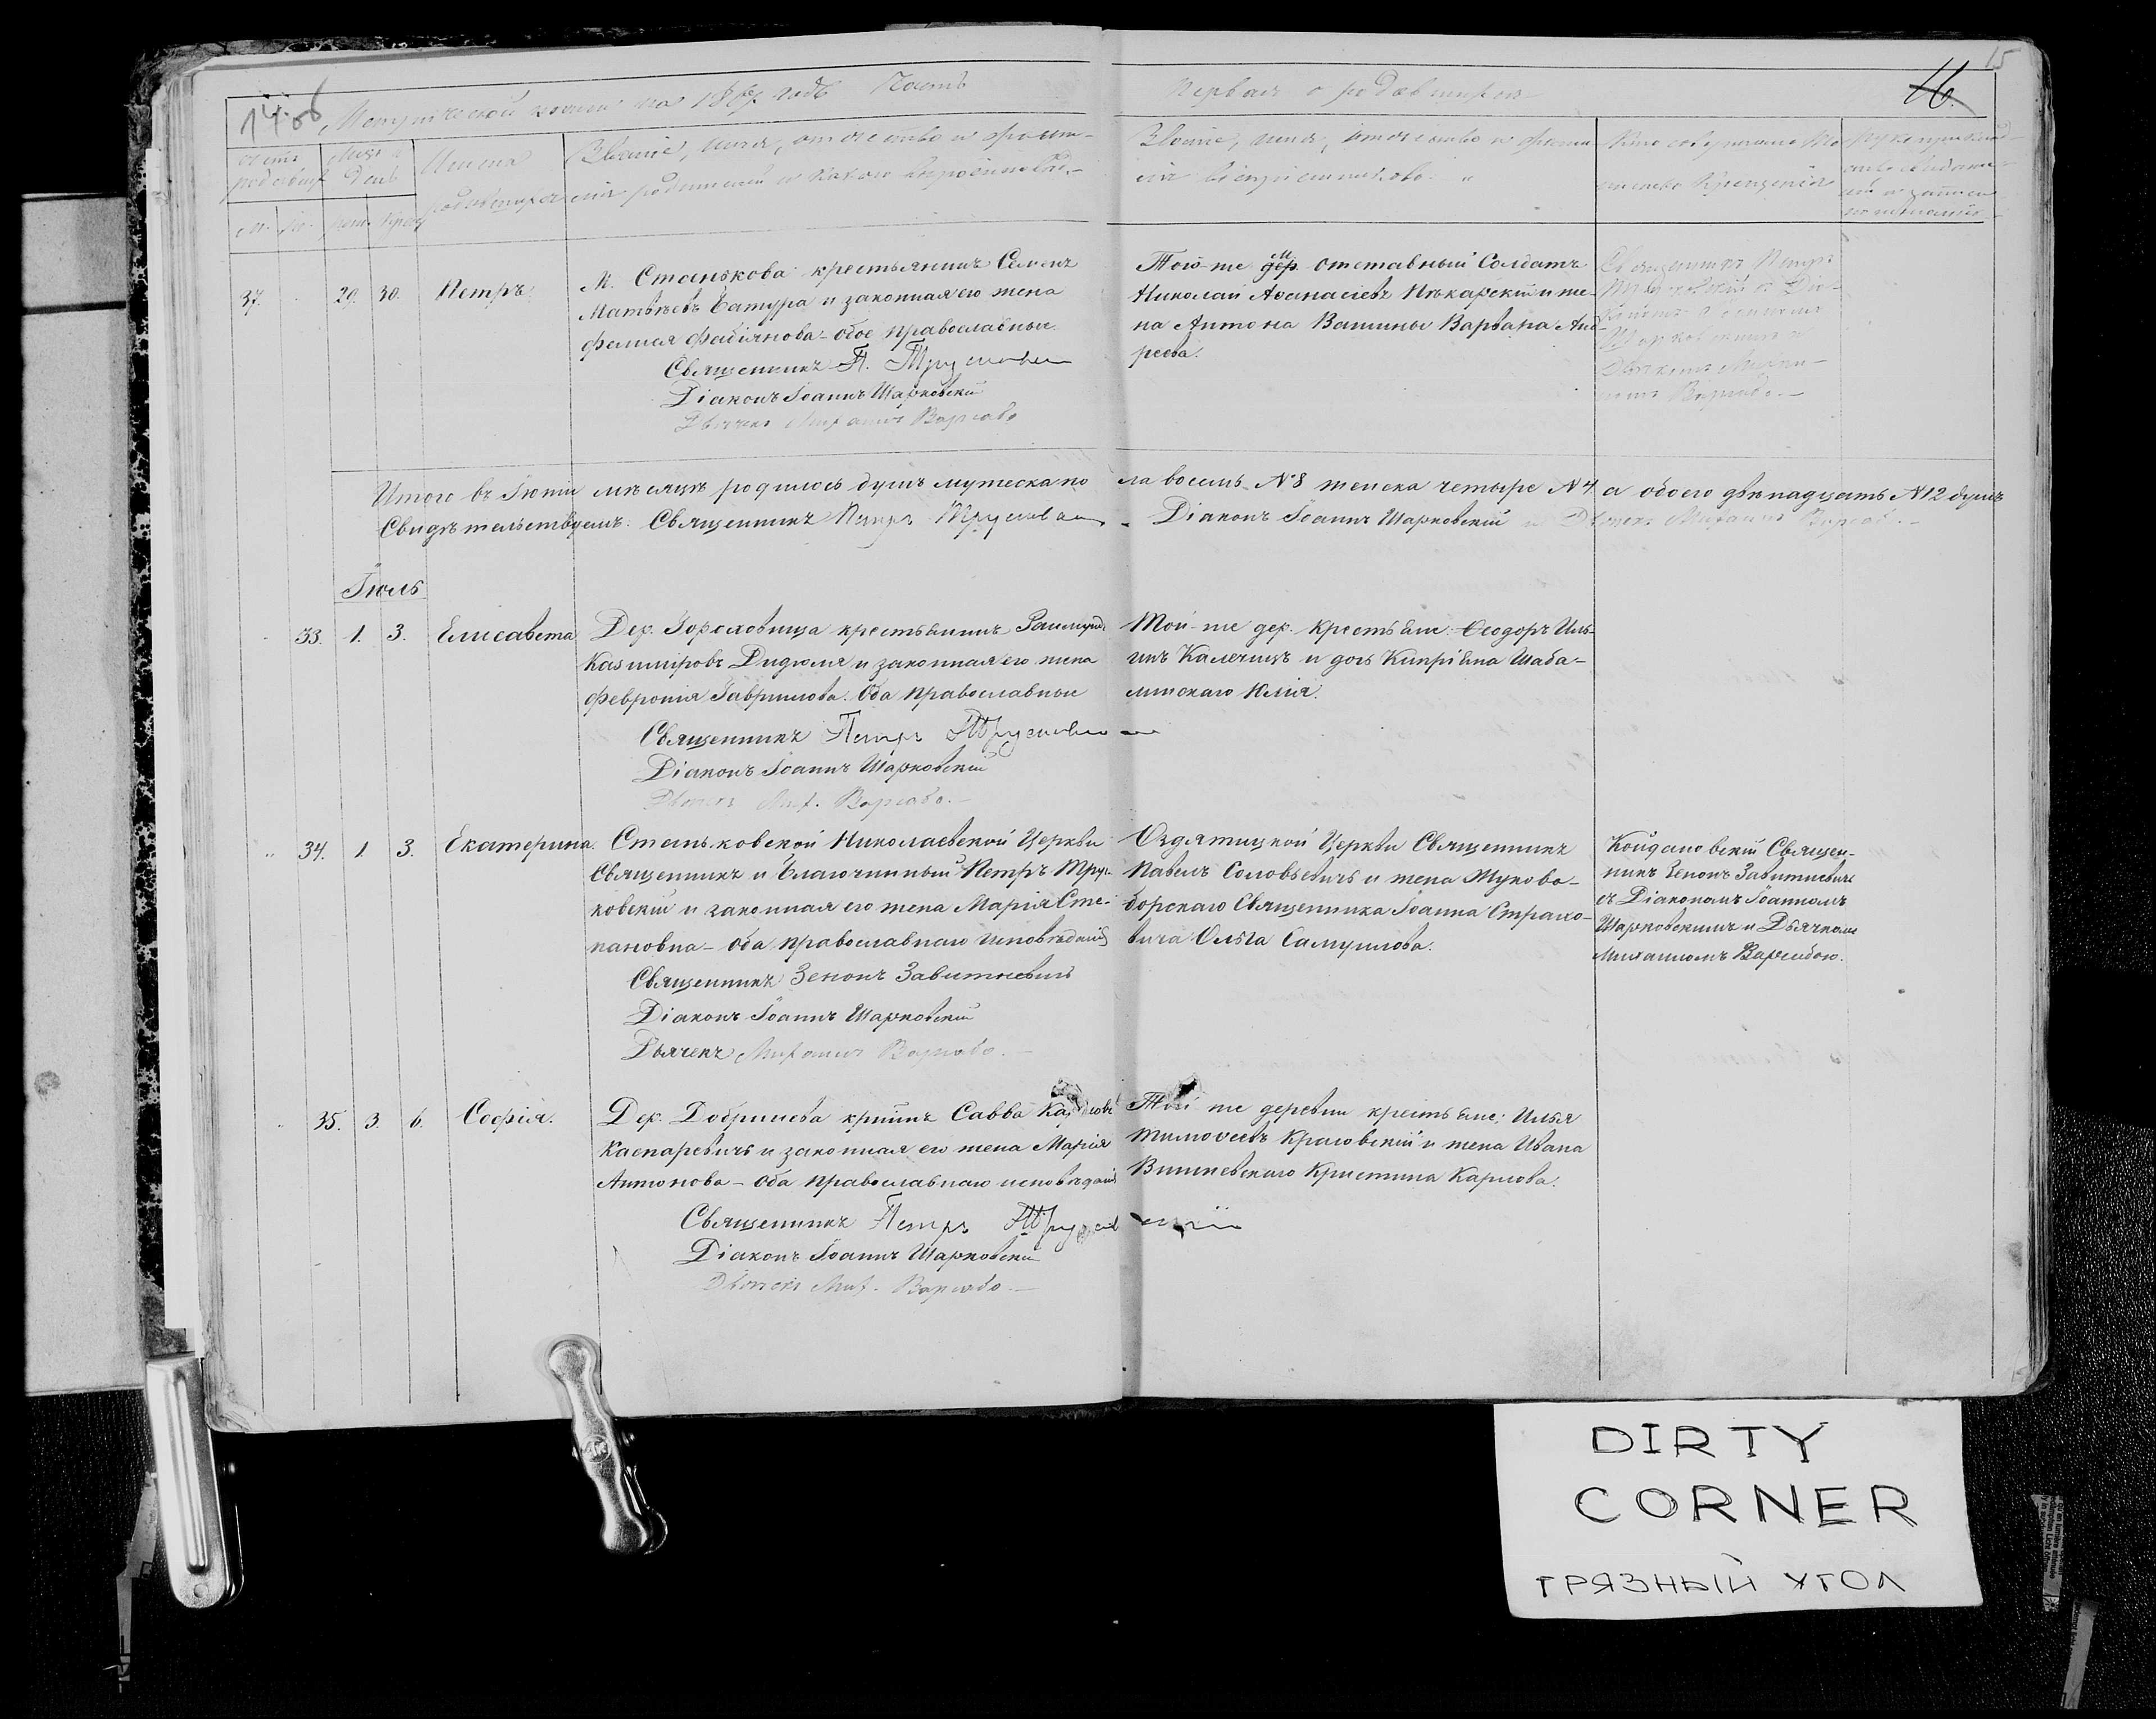 15
14 об
16.
Метрической книги на 186 годъ Часть
Первая о родившихся
Счетъ родившихся
Мѣсяцъ и День
Имена родившихся
Званіе, имя, отчество и фами-
лія родителей и какого вѣроисповѣд.
Званіе, имя, отчество и фами-
лія воспріемниковъ.
Кто совершалъ Та-
инство Крещенія
Рукоприклад-
ство свидѣте-
лей о записи
по желанію
М.
37.
29.
30.
Петръ.
М. Станькова крестьянинъ Семенъ
Матвѣевъ Батура и законная его жена
Фабіянова - обое православные.
Священникъ П. Трусковскій
Діаконъ Іоаннъ Шарковскій
Дьячекъ Михаилъ
Той-же дер. М. отставный Солдатъ
Николай Аѳанасіевъ Пѣкарскій и же-
на Антона Вашины Варвара Анд-
реева.
Священникъ Петръ
Трусковскій съ Діа-
кономъ Іоанномъ
Шарковскимъ и
Дьячкомъ Миха-
иломъ
Итого въ Іюнѣ мѣсяцѣ родилось душъ мужеска по ла восемь № 8 женска четыре № 4 а обоего двѣнадцать № 12 душъ
Свидѣтельствуемъ: Священникъ Петръ Трусковскій Діаконъ Іоаннъ Шарковскій и Дьячекъ Михаилъ
Іюль
33.
1.
3.
Елисавета
Дер. крестьянинъ
Казиміровъ Дидюля и законная его жена
Февронія Гаврилова. Оба православные
Священникъ Петръ Трусковскій
Діаконъ Іоаннъ Шарковскій
Дьячекъ Мих.
Той-же дер. крестьяне: Ѳеодоръ Иль-
инъ Калечицъ и дочь Кипріяна Шаба-
линскаго Юлія.
34.
1.
3.
Екатерина.
Станьковской Николаевской Церкви
Священникъ и Благочинный Петръ Трус-
ковскій и законная его жена Марія Сте-
пановна - оба православнаго исповѣданія
Священникъ Зенонъ Завитневичъ
Діаконъ Іоаннъ Шарковскій
Дьячекъ Михаилъ
Оздятицкой Церкви Священникъ
Павелъ Соловьевичъ и жена Жуково-
борскаго Священника Іоанна Страхо-
вича Ольга Самуилова.
Койдановскій Священ-
никъ Зенонъ Завитневичъ
съ Діакономъ Іоанномъ
Шарковскимъ и Дьячкомъ
Михаиломъ
35.
3.
6.
Софія.
Дер. Добринева кр-нинъ Савва
Каспаревичъ и законная его жена Марія
Антонова - оба православнаго исповѣданія
Священникъ Петръ Трусковскій
Діаконъ Іоаннъ Шарковскій
Дьячекъ Мих.
Той же деревни крестьяне: Илья
Тимоѳеевъ Красовскій и жена Ивана
Вишневскаго Кристина Карлова.
DIRTY
CORNER
ГРЯЗНЫЙ УГОЛ